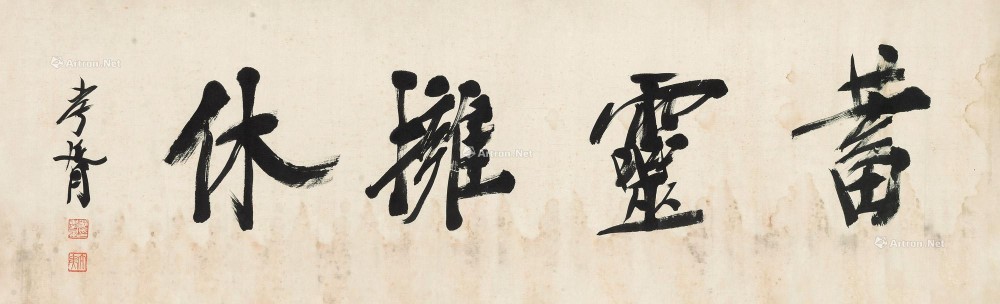 蓄靈擁休
孝胥
Artron.Net
Artron.Net
Artron.Net